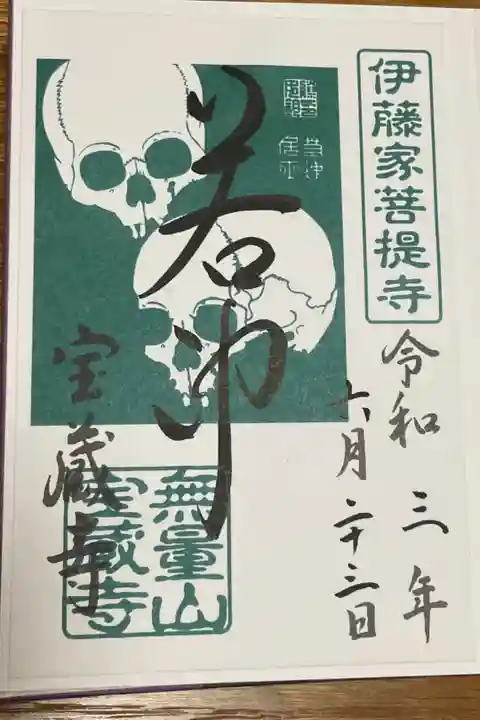 伊藤家菩提寺
令和三年
六月二十三日
若冲
宝蔵寺
無量山
宝蔵寺